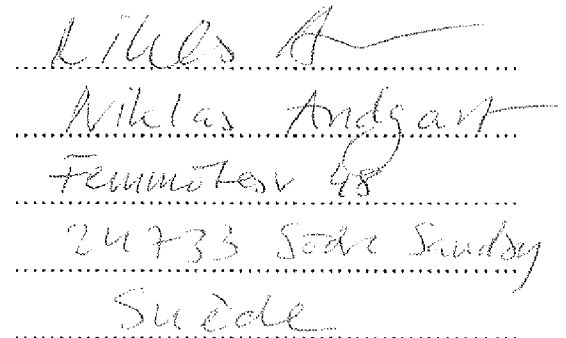 Niklas A
Niklas Andgart
Femmötesv 48
24733 Södra Sandby
Suède